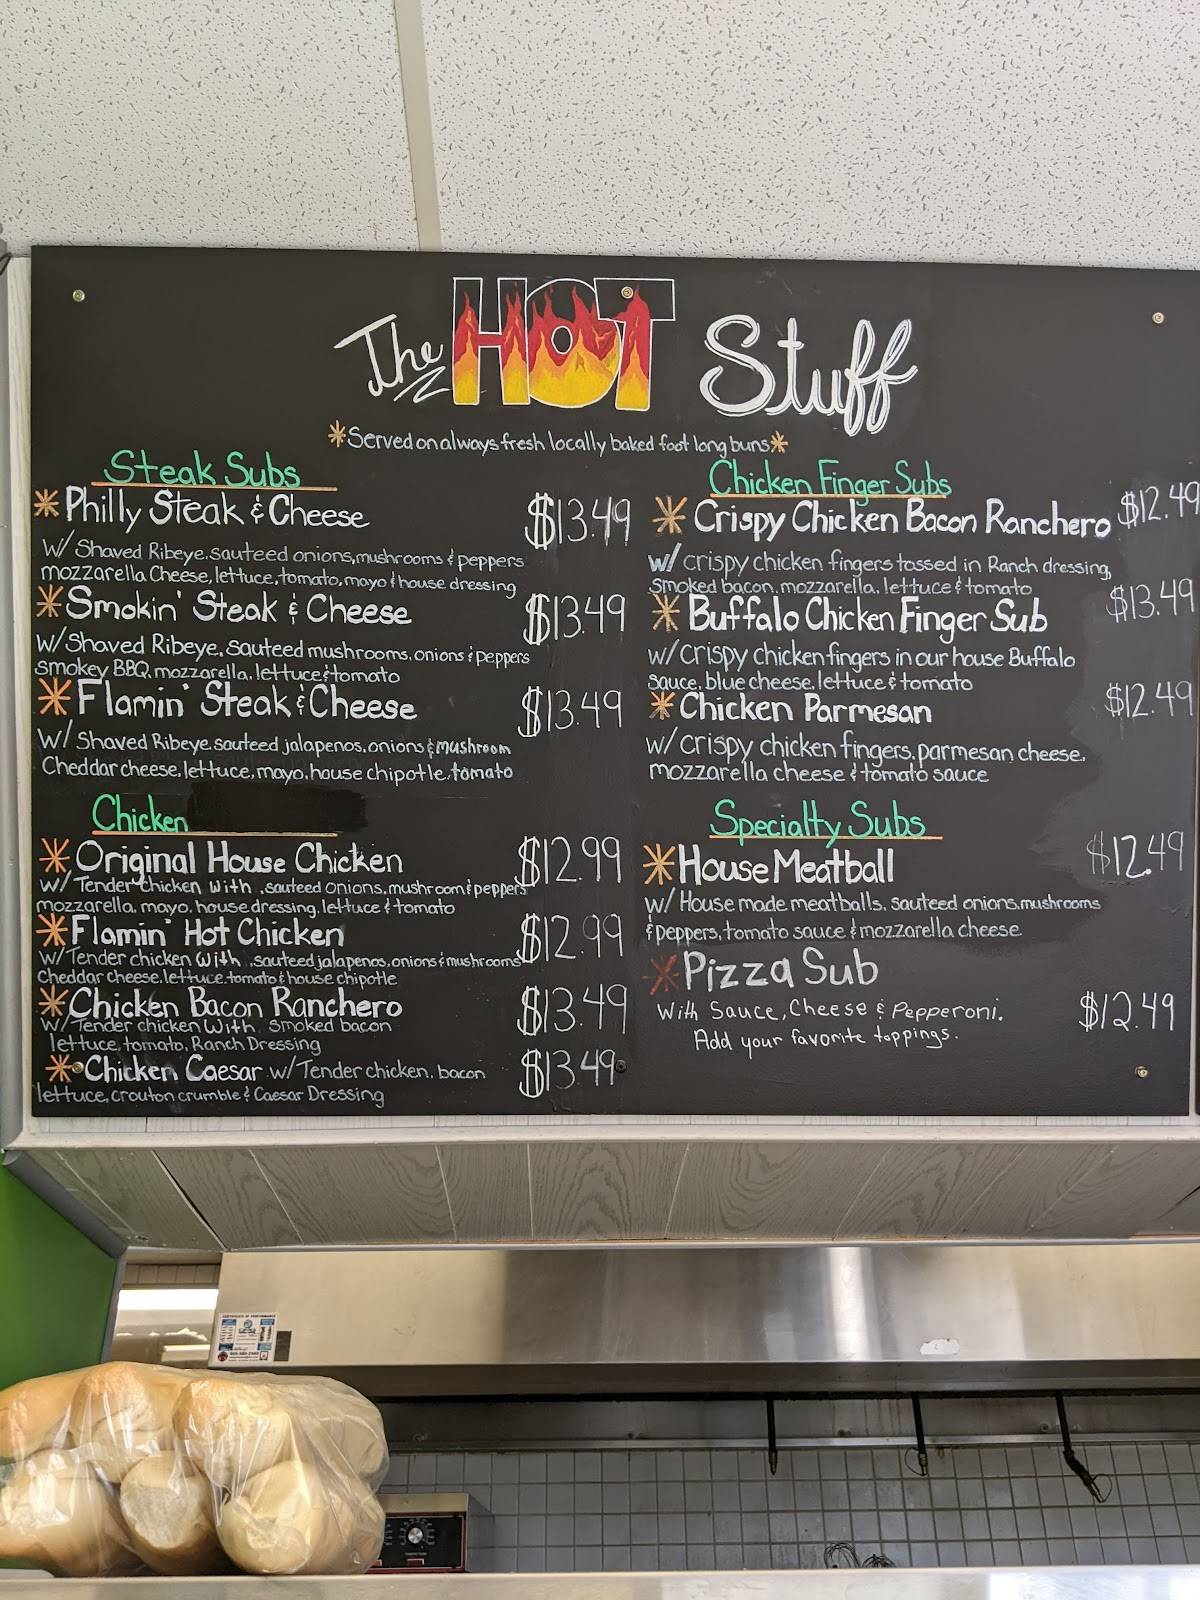 The HOT Stuff
*Served on always fresh locally baked foot long buns*
Steak Subs
*Philly Steak & Cheese $13.49
w/ Shaved Ribeye, sauteed onions, mushrooms & peppers
mozzarella Cheese, lettuce, tomato, mayo & house dressing
*Smokin' Steak & Cheese $13.49
w/ Shaved Ribeye, Sauteed mushrooms, onions & peppers
smokey BBQ, mozzarella, lettuce & tomato
*Flamin' Steak & Cheese $13.49
w/ Shaved Ribeye sauteed jalapenos, onions & mushroom
Cheddar cheese, lettuce, mayo, house chipotle, tomato
Chicken
*Original House Chicken $12.99
w/ Tender chicken with , sauteed onions, mushroom & peppers
mozzarella, mayo, house dressing, lettuce & tomato
*Flamin' Hot Chicken $12.99
w/ Tender chicken with , sauteed jalapenos, onions & mushrooms
Cheddar cheese, lettuce, tomato & house chipotle
*Chicken Bacon Ranchero $13.49
w/ Tender chicken with smoked bacon
lettuce, tomato, Ranch Dressing
*Chicken Caesar w/ Tender chicken, bacon $13.49
lettuce, crouton crumble & Caesar Dressing
Chicken Finger Subs
*Crispy Chicken Bacon Ranchero $12.49
w/ crispy chicken fingers tossed in Ranch dressing,
Smoked bacon, mozzarella, lettuce & tomato
*Buffalo Chicken Finger Sub $13.49
w/ crispy chicken fingers in our house Buffalo
Sauce, blue cheese, lettuce & tomato
*Chicken Parmesan $12.49
w/ crispy chicken fingers, parmesan cheese,
mozzarella cheese & tomato sauce
Specialty Subs
*House Meatball $12.49
w/ House made meatballs, sauteed onions, mushrooms
& peppers, tomato sauce & mozzarella cheese
*Pizza Sub
With Sauce, Cheese & Pepperoni. $12.49
Add your favorite toppings.